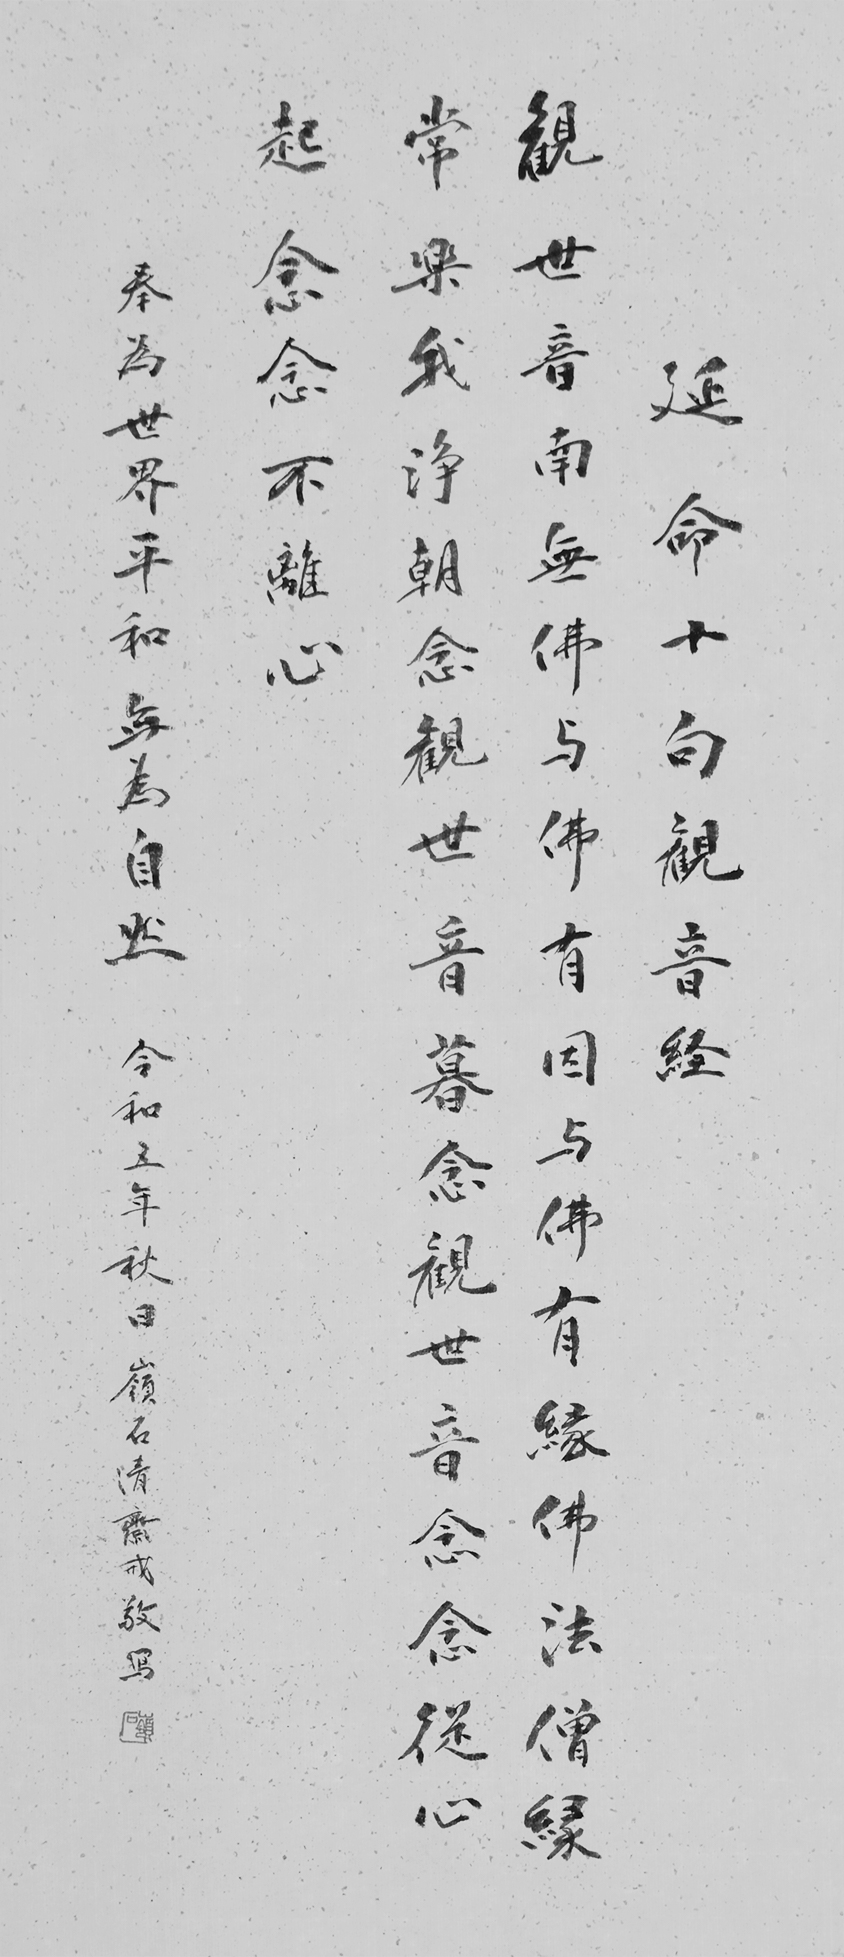 延命十句観音経
観世音南無佛与佛有因与佛有縁佛法僧縁
常楽我浄朝念観世音暮念観世音念念従心
起念念不離心
奉為世界平和無為自然 令和五年秋日 嶺石清齋戒敬写
嶺石